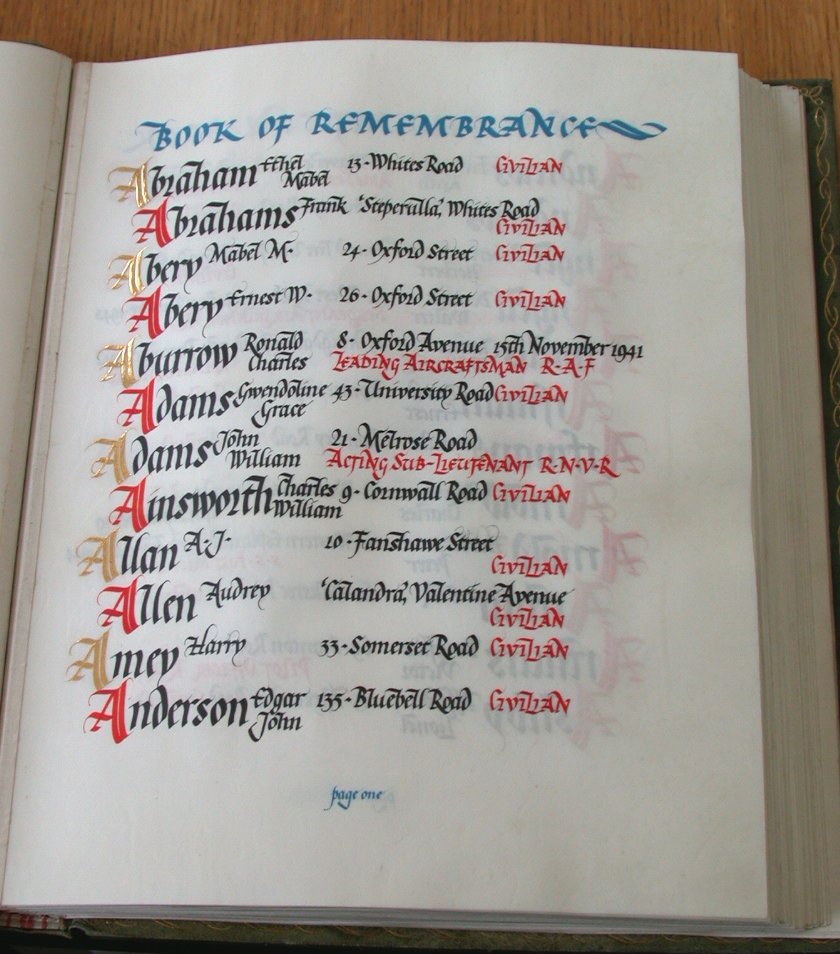 BOOK OF REMEMBRANCE
Abraham Ethel Mabel 13·Whites Road CIVILIAN
Abrahams Frank 'Steperulla', Whites Road
CIVILIAN
Abery Mabel M· 24·Oxford Street CIVILIAN
Abery Ernest W· 26·Oxford Street CIVILIAN
Aburrow Ronald Charles 8·Oxford Avenue 15th November 1941
LEADING AIRCRAFTSMAN R·A·F
Adams Gwendoline Grace 43·University Road CIVILIAN
Adams John William 21·Melrose Road
ACTING SUB-LIEUTENANT R·N·V·R
Ainsworth Charles William 9·Cornwall Road CIVILIAN
Allan A·J· 10·Fanshawe Street
CIVILIAN
Allen Audrey 'Calandra', Valentine Avenue
CIVILIAN
Amey Harry 33·Somerset Road CIVILIAN
Anderson Edgar John 135·Bluebell Road CIVILIAN
page one